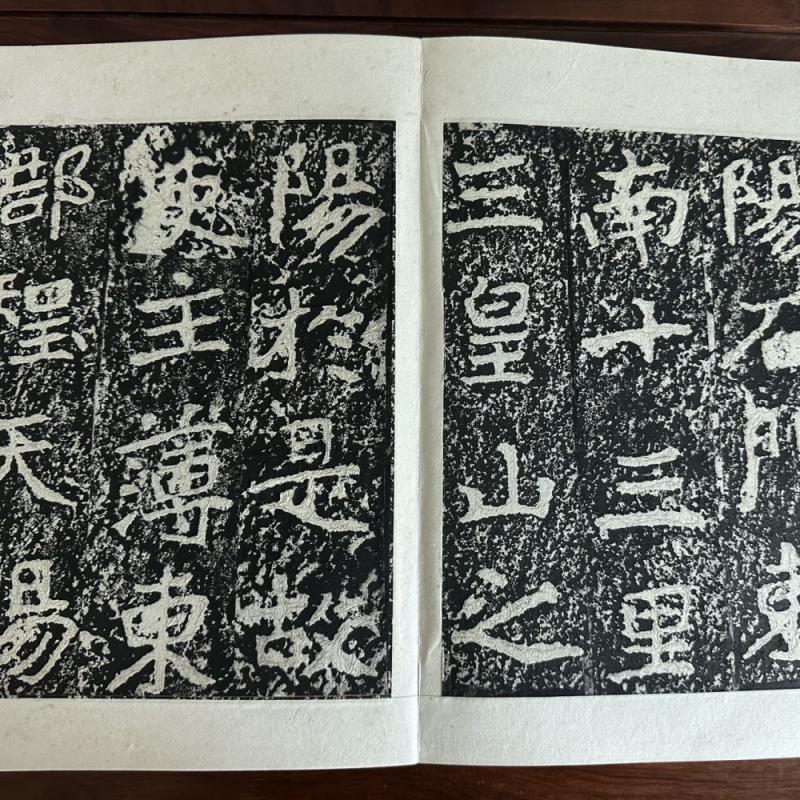 陽石門東
南十三里
三皇山之
陽於是故
吏主薄東
郡程天賜